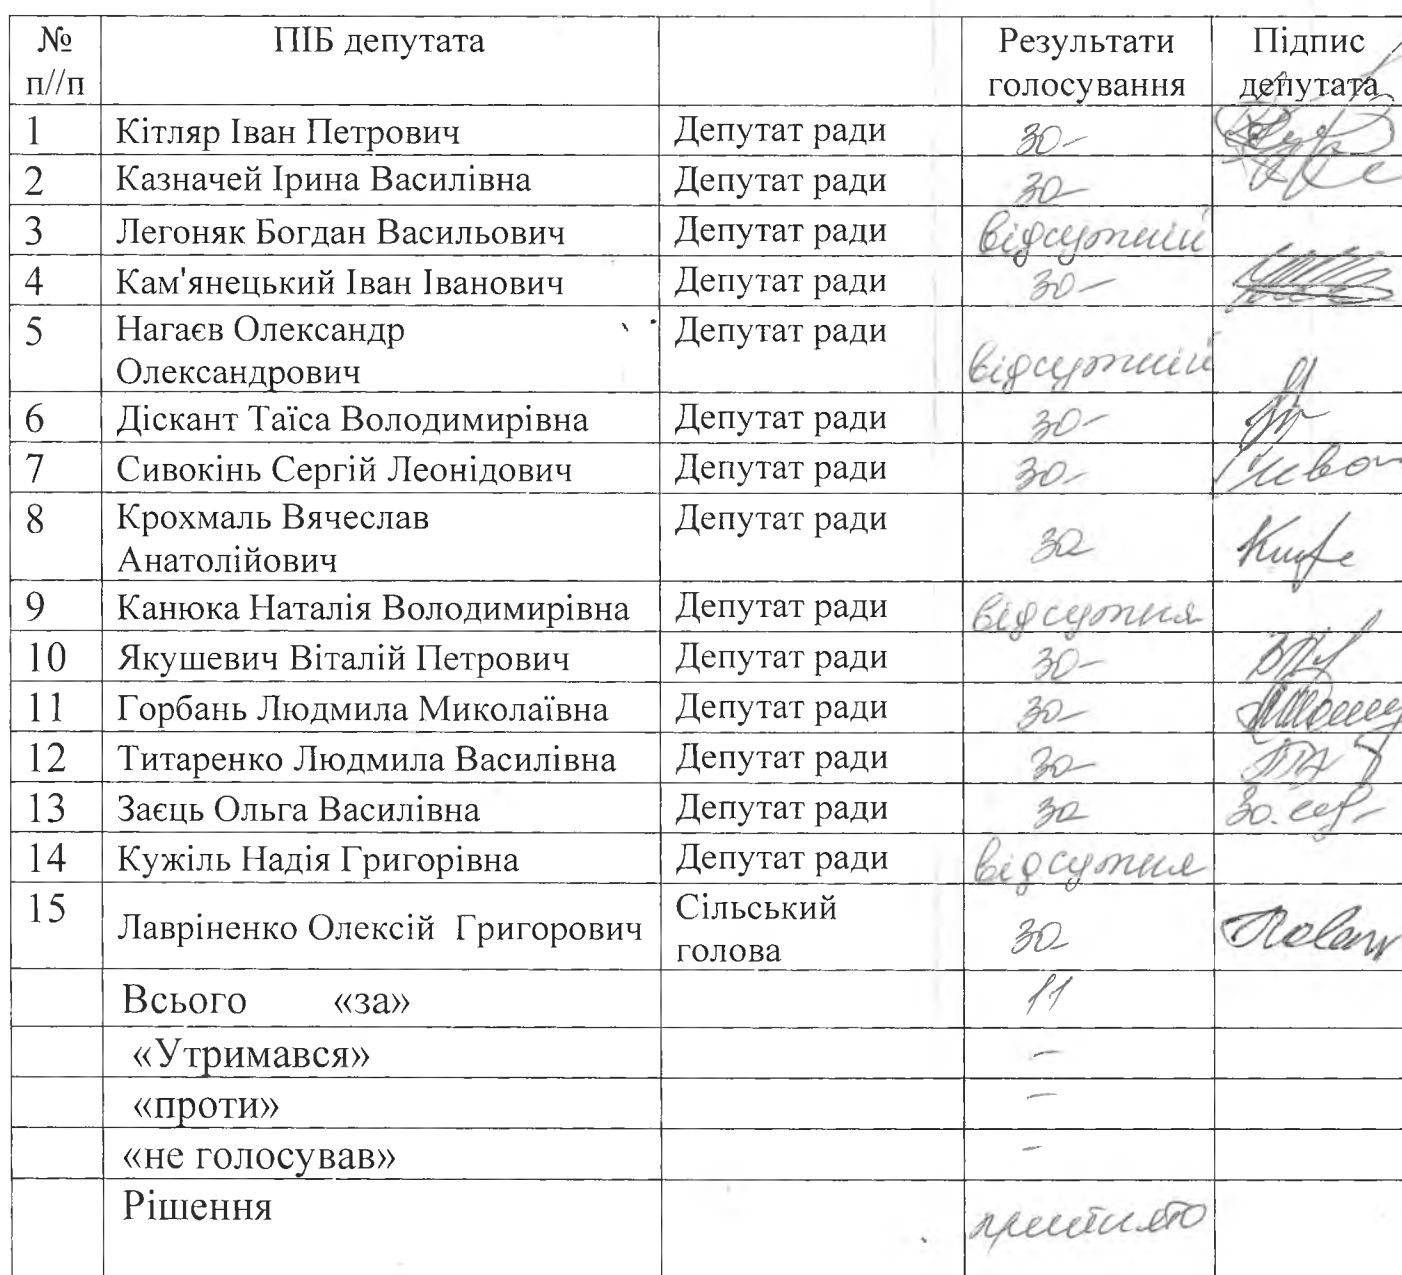 № ПІБ депутата Результати Підпис
п//п голосування депутата
1 Кітляр Іван Петрович Депутат ради за
2 Казначей Ірина Василівна Депутат ради за
3 Легоняк Богдан Васильович Депутат ради відсутній
4 Кам'янецький Іван Іванович Депутат ради за
5 Нагаєв Олександр Депутат ради
Олександрович відсутній
6 Діскант Таїса Володимирівна Депутат ради за
7 Сивокінь Сергій Леонідович Депутат ради за
8 Крохмаль Вячеслав Депутат ради
Анатолійович за
9 Канюка Наталія Володимирівна Депутат ради відсутня
10 Якушевич Віталій Петрович Депутат ради за
11 Горбань Людмила Миколаївна Депутат ради за
12 Титаренко Людмила Василівна Депутат ради за
13 Заєць Ольга Василівна Депутат ради за
14 Кужіль Надія Григорівна Депутат ради відсутня
15 Лавріненко Олексій Григорович Сільський за
голова
Всього «за» 11
«Утримався» –
«проти» –
«не голосував» –
Рішення прийнято